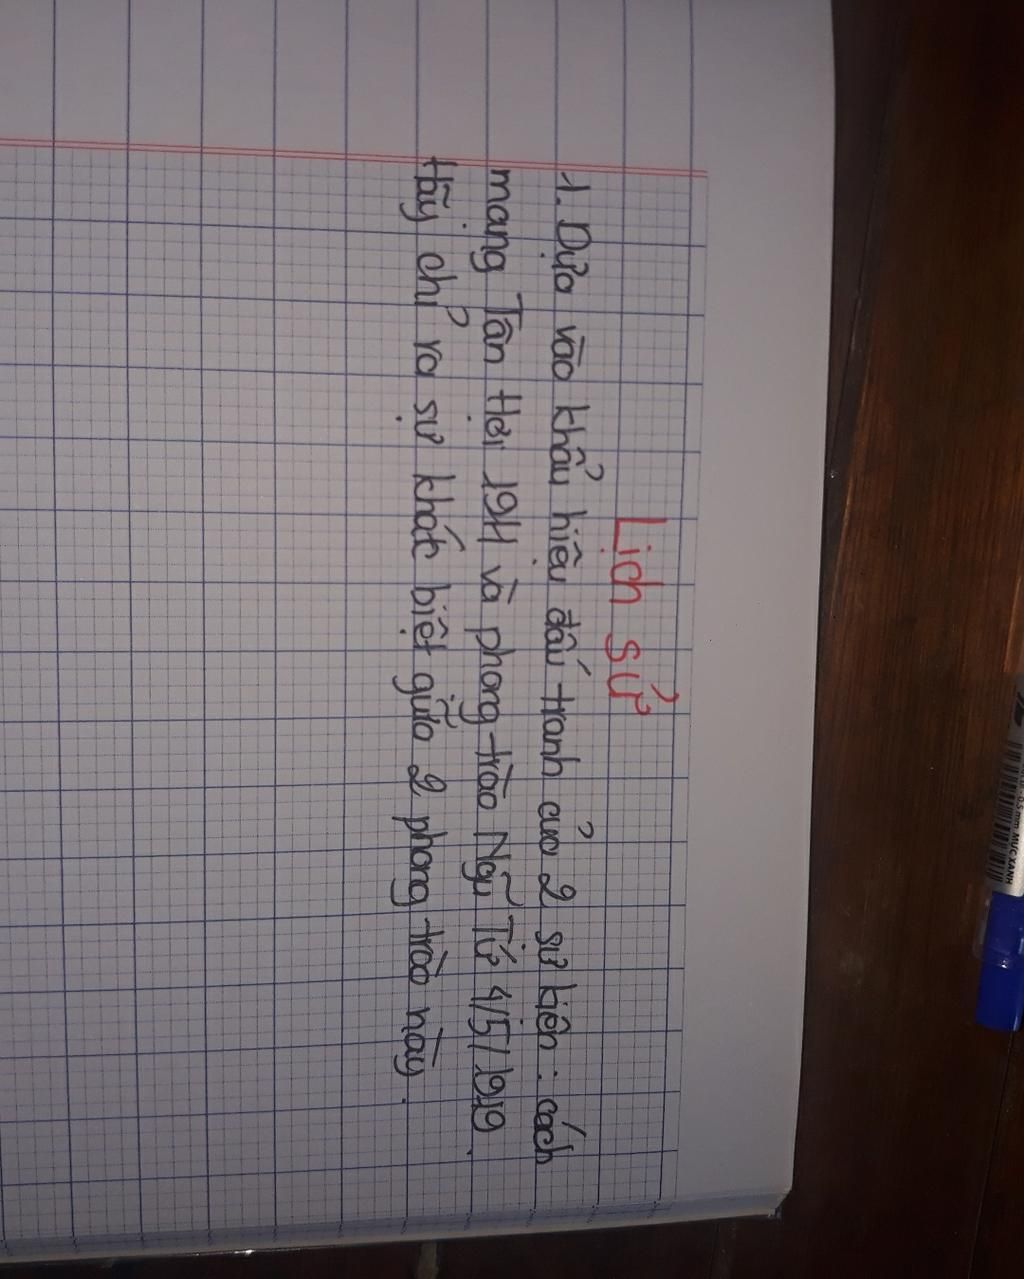 Lịch sử
1. Dựa vào khẩu hiệu đấu tranh của 2 sự kiện : cách
mạng Tân Hợi 1911 và phong trào Ngũ Tứ 4/5/1919.
Hãy chỉ ra sự khác biệt giữa 2 phong trào này.